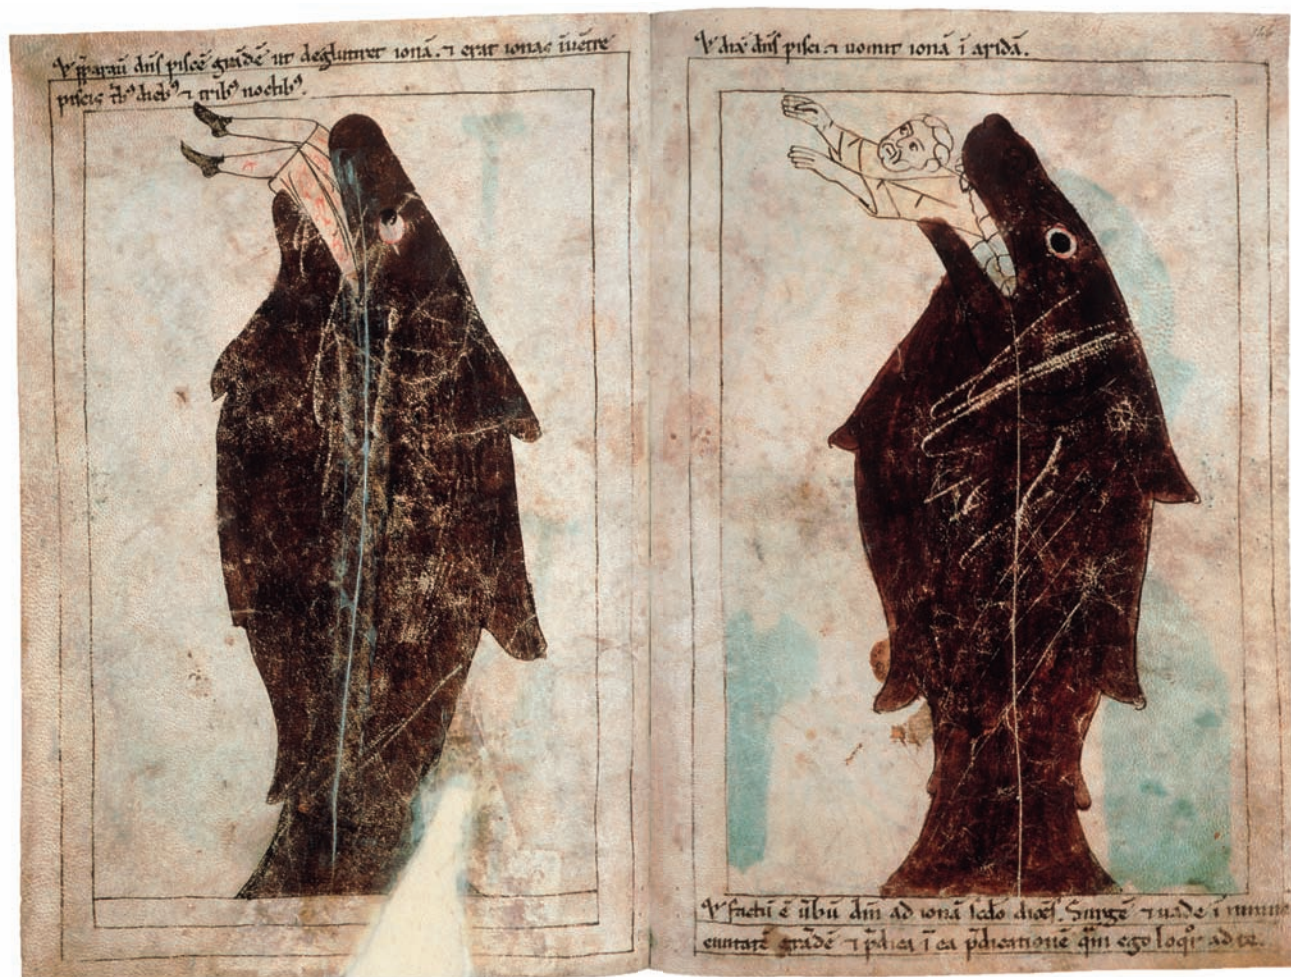 & p̄parauit dn̄s piscē grādē ut deglutiret ionā. ⁊ erat ionas ī uētre
piscis tͥbꝰ diebꝰ ⁊ tribꝰ noctibꝰ.
& dix̄ dn̄s pisci ⁊ uomit ionā ī aridā.
& factū ē ūbū dn̄i ad ionā scd̄o dicēs. Surge ⁊ uade ī niniue
ciuitatē grādē ⁊ p̄dica ī ea p̄dicationē qm̄ ego loqͦr ad te.